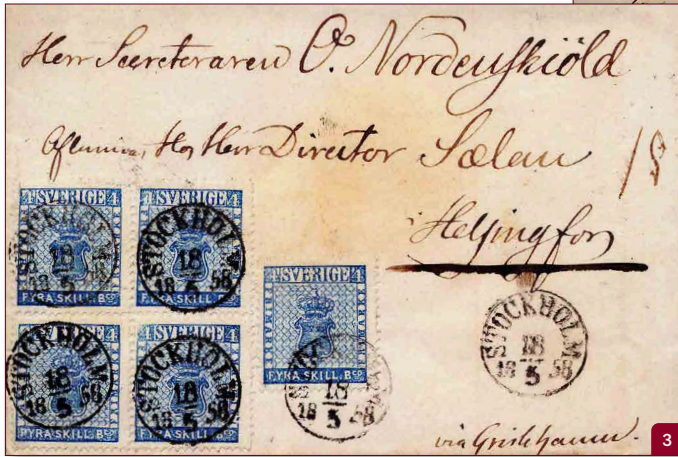 Herr Secreteraren O. Nordenskiöld
Hos Herr Director Sælan
Helsingfors
4 SVERIGE 4
FYRA SKILL. Bco
STOCKHOLM
18
5
18 58
4 SVERIGE 4
FYRA SKILL. Bco
STOCKHOLM
18
5
18 58
4 SVERIGE 4
FYRA SKILL. Bco
STOCKHOLM
18
5
18 58
4 SVERIGE 4
FYRA SKILL. Bco
STOCKHOLM
18
5
18 58
4 SVERIGE 4
FYRA SKILL. Bco
18
5
18 58
STOCKHOLM
18
5
18 58
via Grislehamn.
3